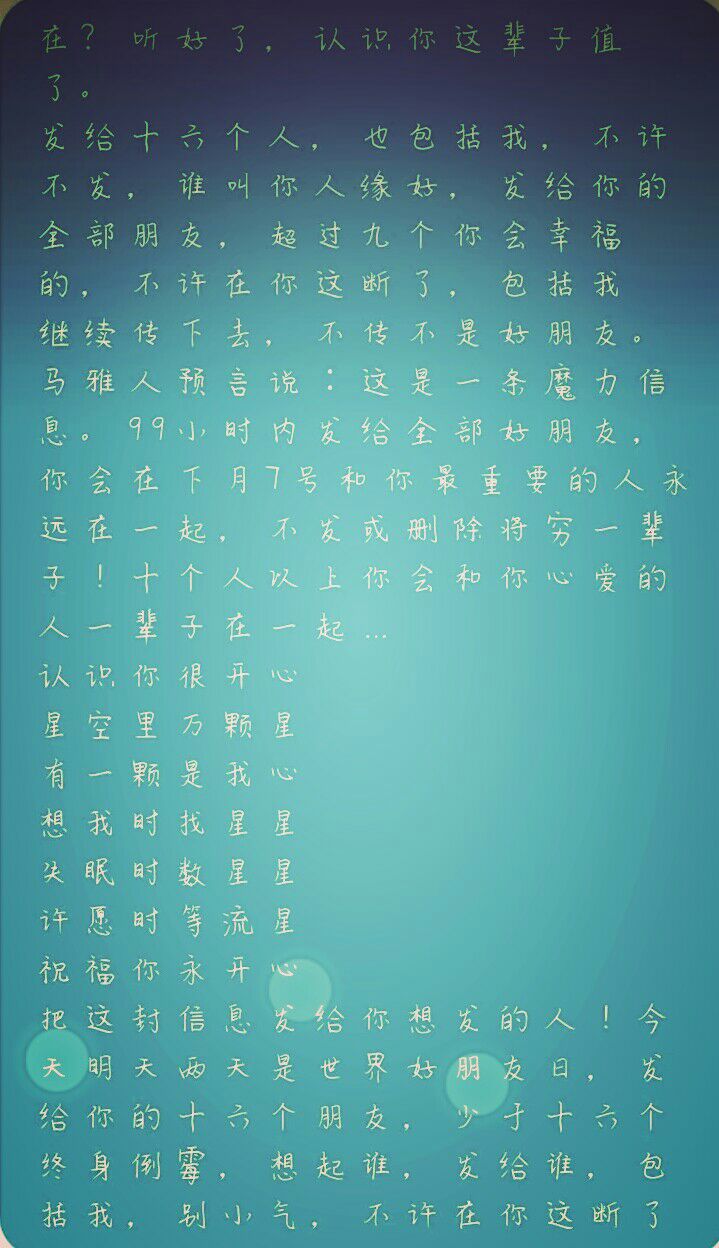 在？听好了，认识你这辈子值
了。
发给十六个人，也包括我，不许
不发，谁叫你人缘好，发给你的
全部朋友，超过九个你会幸福
的，不许在你这断了，包括我
继续传下去，不传不是好朋友。
马雅人预言说：这是一条魔力信
息。99小时内发给全部好朋友，
你会在下月7号和你最重要的人永
远在一起，不发或删除将穷一辈
子！十个人以上你会和你心爱的
人一辈子在一起...
认识你很开心
星空里万颗星
有一颗是我心
想我时找星星
失眠时数星星
许愿时等流星
祝福你永开心
把这封信息发给你想发的人！今
天明天两天是世界好朋友日，发
给你的十六个朋友，少于十六个
终身倒霉，想起谁，发给谁，包
括我，别小气，不许在你这断了